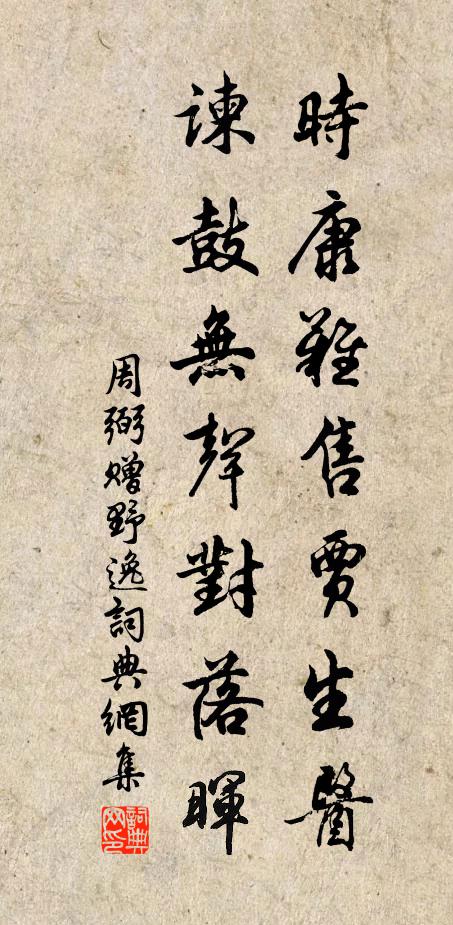 時康難售賈生醫
諫鼓無聲對落暉
周弼贈野逸詞典網集
詞典网印